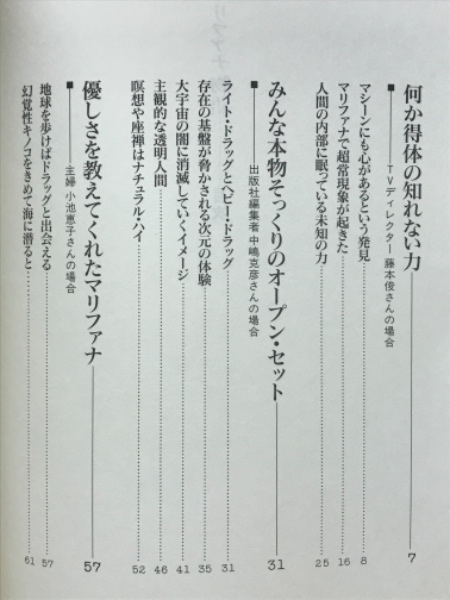 何か得体の知れない力 7
■ TVディレクター 藤本俊さんの場合
マシーンにも心があるという発見 8
マリファナで超常現象が起きた 16
人間の内部に眠っている未知の力 25
みんな本物そっくりのオープン・セット 31
■ 出版社編集者 中嶋克彦さんの場合
ライト・ドラッグとヘビー・ドラッグ 31
存在の基盤が脅かされる次元の体験 35
大宇宙の闇に消滅していくイメージ 41
主観的な透明人間 46
瞑想や座禅はナチュラル・ハイ 52
優しさを教えてくれたマリファナ 57
■ 主婦 小池恵子さんの場合
地球を歩けばドラッグと出会える 57
幻覚性キノコをきめて海に潜ると 61